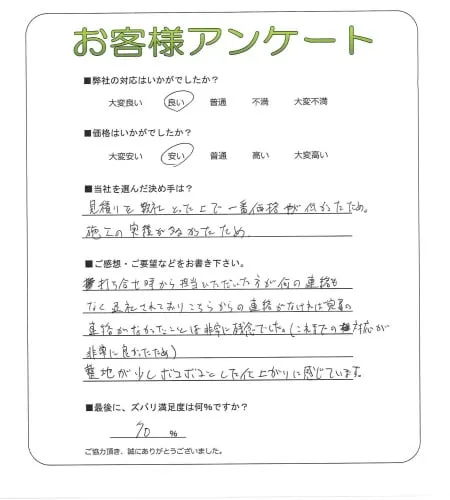 お客様アンケート
■弊社の対応はいかがでしたか?
大変良い 良い 普通 不満 大変不満
■価格はいかがでしたか?
大変安い 安い 普通 高い 大変高い
■当社を選んだ決め手は?
見積りを数社とった上で一番価格が低かったため。
施工の実績が多かったため
■ご感想・ご要望などをお書き下さい。
打ち合せ時から担当いただいた方が何の連絡も
なく退社されておりこちらからの連絡がなければ変更の
連絡がなかったことは非常に残念でした。(これまでの対応が
非常に良かったため)
墓地が少しボコボコとした仕上がりに感じています。
■最後に、ズバリ満足度は何%ですか?
70 %
ご協力頂き、誠にありがとうございました。